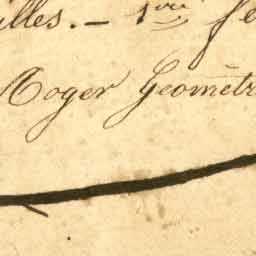 illes. – 1ère fe
Roger Géomètr